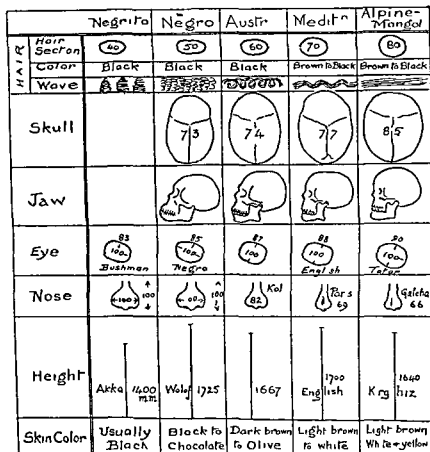 Negrito Negro Austr Meditn Alpine-Mongol
HAIR
Hair Section 40 50 60 70 80
Color Black Black Black Brown to Black Brown to Black
Wave
Skull 73 74 77 85
Jaw
Eye 83 100 Bushman 85 100 Negro 87 100 88 100 English 90 100 Tatar
Nose 100 100 00 100 82 Kol Pars 69 Galcha 66
Height Akka 1400 mm Wolof 1725 1667 1700 English 1640 Krghiz
Skin Color Usually Black Black to Chocolate Dark brown to Olive Light brown to white Light brown White + yellow